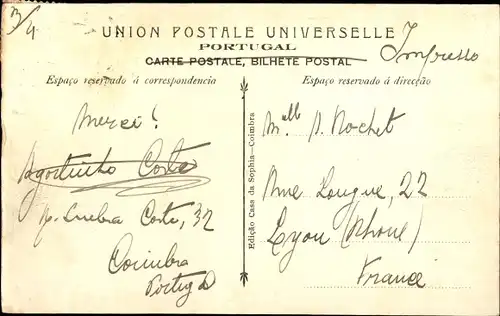 3/4
UNION POSTALE UNIVERSELLE
Impresso
PORTUGAL
CARTE POSTALE, BILHETE POSTAL
Espaço reservado á correspondencia
Espaço reservado á direcção
Merci!
Agostinho Costa
Costa, 32
Coimbra
Portugal
Edição Casa da Sophia—Coimbra
Melle J. Rochet
Rue Longue, 22
Lyon (Rhone)
France